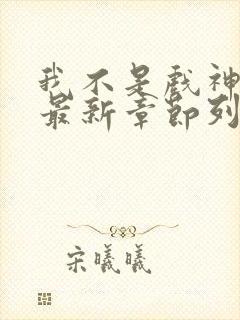 我不是戏神
最新章节列
宋曦曦